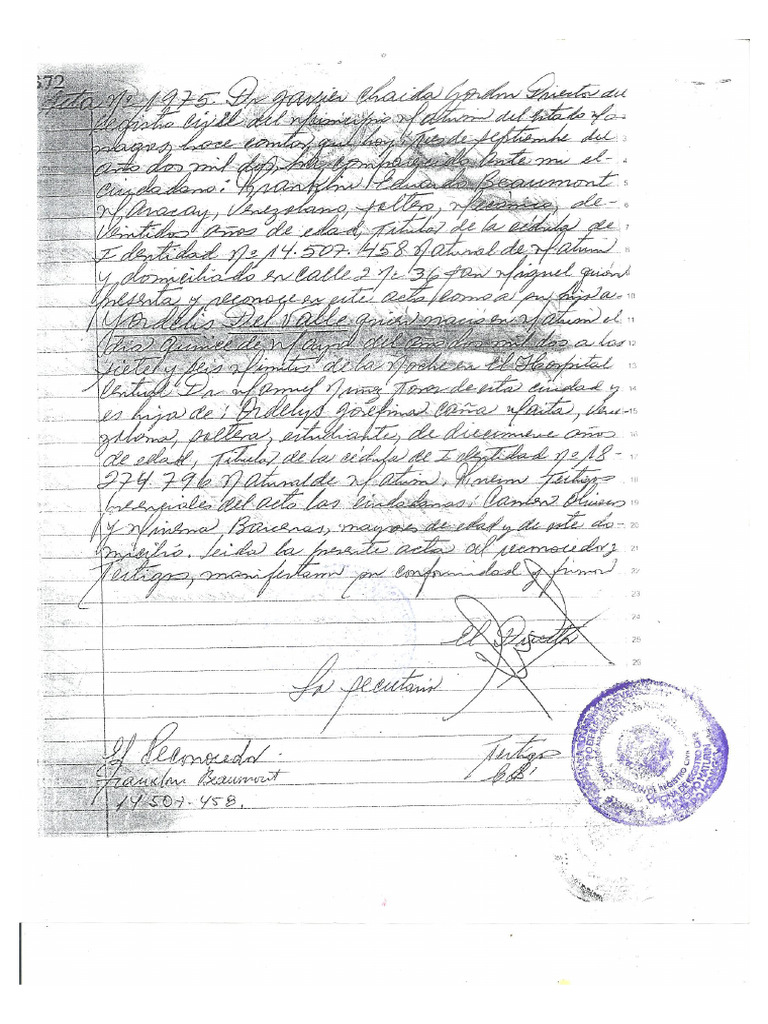 372
Acta Nº 1975. Dr Javier Chaida Gordon Director del
Registro Civil del Municipio Maturin del Estado Mo-
nagas, hace constar que hoy: tres de septiembre del
año dos mil dos, ha comparecido ante mi el
ciudadano: Franklin Eduardo Beaumont
Maracay, Venezolano, soltero, de
veintidos años de edad, Titular de la cédula de
Identidad Nº 14.507.458 Natural de Maturin
y domiciliado en calle 2 Nº 36 San Miguel quien
presenta y reconoce en este acto como a su hija a-
Yordelis Del Valle quien nacio en Maturin el
Dia quince de Mayo del año dos mil dos a las
siete y seis Minutos de la Noche en el Hospital
Central Dr Manuel Nuñez Tovar de esta ciudad y
es hija de: Ordelys Josefina caña Maita, Vene-
zolana, soltera, estudiante, de diecinueve años
de edad, Titular de la cédula de Identidad Nº 18-
274.796 Natural de Maturin. Fueron Testigos
presenciales del acto las ciudadanas: Carmen
y Barceras, mayores de edad y de este do-
micilio. Leida la presente acta al reconocedor y
Testigos, manifestaron su conformidad y firman
El Director
La secretaria
El Reconocedor.
Franklin Beaumont
14 507-458.
Testigos
3
4
5
6
7
8
9
10
11
12
13
14
15
16
17
18
19
20
21
22
23
24
25
26